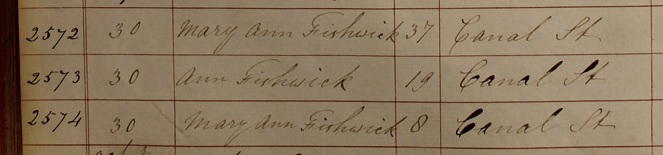 2572 30 Mary Ann Fishwick 37 Canal St
2573 30 Ann Fishwick 19 Canal St
2574 30 Mary Ann Fishwick 8 Canal St